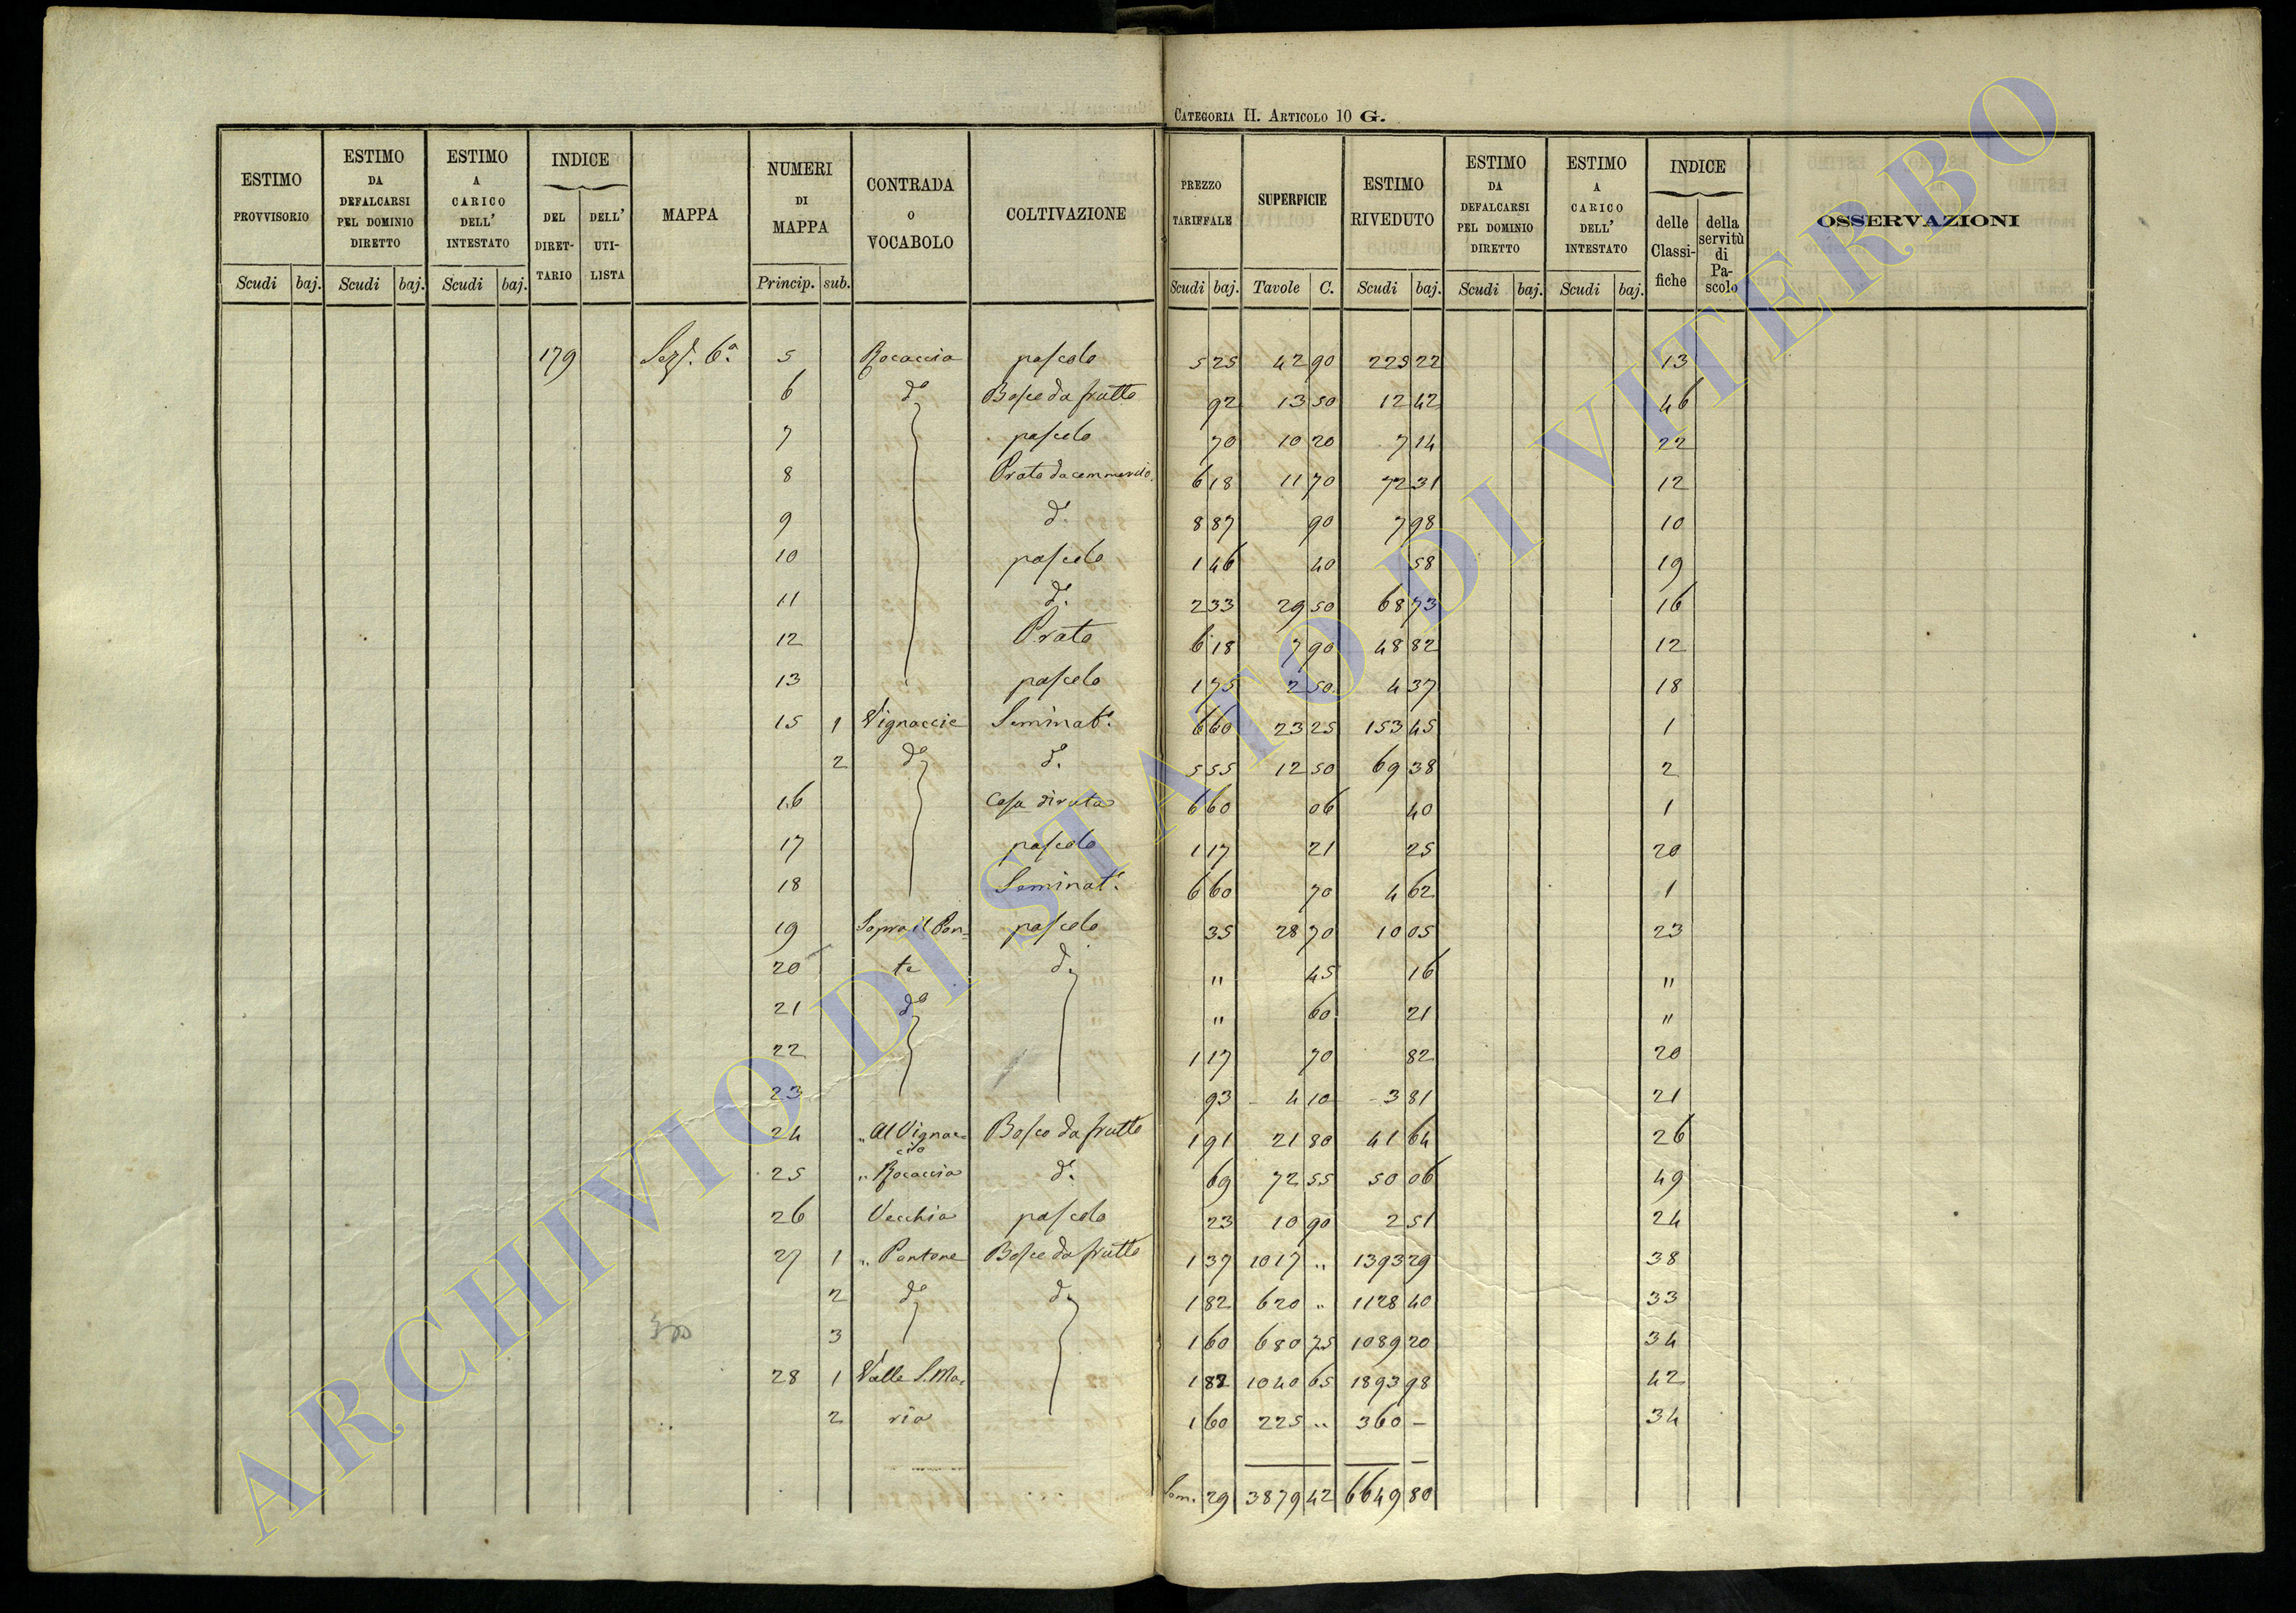 CATEGORIA II. ARTICOLO 10 G.
ESTIMO PROVVISORIO | ESTIMO DA DEFALCARSI PEL DOMINIO DIRETTO | ESTIMO A CARICO DELL' INTESTATO | INDICE DEL DIRETTARIO | DELL' UTILISTA | MAPPA | NUMERI DI MAPPA | CONTRADA O VOCABOLO | COLTIVAZIONE | PREZZO TARIFFALE | SUPERFICIE | ESTIMO RIVEDUTO | ESTIMO DA DEFALCARSI PEL DOMINIO DIRETTO | ESTIMO A CARICO DELL' INTESTATO | INDICE delle Classifiche | della servitù di Pascolo | OSSERVAZIONI
Scudi | baj. | Scudi | baj. | Scudi | baj. | Princip. | sub. | Scudi | baj. | Tavole | C. | Scudi | baj. | Scudi | baj. | Scudi | baj.
179 | Sez. 6a. | 5 | Rocaccia | pascolo | 5 25 | 42 90 | 225 22 | 13
6 | do | Bosco da frutto | 92 | 13 50 | 12 42 | 46
7 | pascolo | 70 | 10 20 | 7 14 | 22
8 | Prato da commercio | 6 18 | 11 70 | 72 31 | 12
9 | do. | 8 87 | 90 | 7 98 | 10
10 | pascolo | 1 46 | 40 | 58 | 19
11 | do. | 2 33 | 29 50 | 68 73 | 16
12 | Prato | 6 18 | 7 90 | 48 82 | 12
13 | pascolo | 1 75 | 2 50 | 4 37 | 18
15 | 1 | Vignaccie | Seminato. | 6 60 | 23 25 | 153 45 | 1
2 | do | do. | 5 55 | 12 50 | 69 38 | 2
16 | Casa diruta | 6 60 | 06 | 40 | 1
17 | pascolo | 1 17 | 21 | 25 | 20
18 | Seminato. | 6 60 | 70 | 4 62 | 1
19 | Sopra il Pon= | pascolo | 35 | 28 70 | 10 05 | 23
20 | te | do | " | 45 | 16 | "
21 | do | " | 60 | 21 | "
22 | 1 17 | 70 | 82 | 20
23 | 93 | 4 10 | 3 81 | 21
24 | " Al Vignac=cio | Bosco da frutto | 1 91 | 21 80 | 41 64 | 26
25 | " Rocaccia | do. | 69 | 72 55 | 50 06 | 49
26 | Vecchia | pascolo | 23 | 10 90 | 2 51 | 24
27 | 1 | " Pontone | Bosco da frutto | 1 37 | 1017 " | 1393 29 | 38
2 | do | do | 1 82 | 620 " | 1128 40 | 33
3 | 1 60 | 680 75 | 1089 20 | 34
28 | 1 | Valle S. Ma= | 1 82 | 1040 65 | 1893 98 | 42
2 | ria | 1 60 | 225 " | 360 — | 34
Som. | 29 | 3879 42 | 6649 80
ARCHIVIO DI STATO DI VITERBO